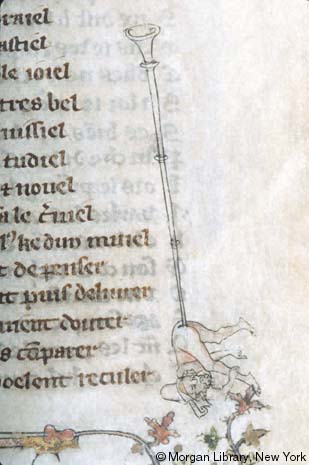 raiel
astiel
le ioiel
tres bel
uissiel
tudiel
t nouel
a le
ke dun muiel
t de penser
nt puis deliurer
ment douter
s
uoelent reculer
© Morgan Library, New York